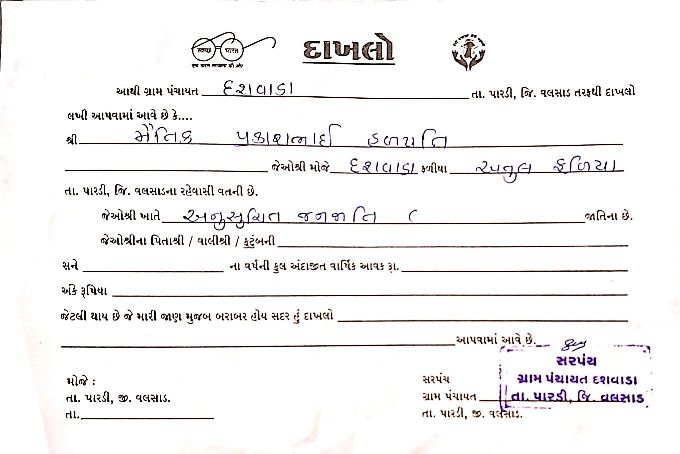 સ્વચ્છ ભારત
એક કદમ સ્વચ્છતા કી ઓર
દાખલો
આથી ગ્રામ પંચાયત દશવાડા તા. પારડી, જિ. વલસાડ તરફથી દાખલો
લખી આપવામાં આવે છે કે....
શ્રી મૈનિક પ્રકાશભાઈ હળપતિ
જેઓશ્રી મોજે દશવાડા ફળીયા અતુલ ફળિયા
તા. પારડી, જિ. વલસાડના રહેવાસી વતની છે.
જેઓશ્રી ખાતે અનુસુચિત જનજાતિ ( જાતિના છે.
જેઓશ્રીના પિતાશ્રી / વાલીશ્રી / કુટુંબની
સને ના વર્ષની કુલ અંદાજીત વાર્ષિક આવક રૂા.
અંકે રૂપિયા
જેટલી થાય છે જે મારી જાણ મુજબ બરાબર હોય સદર હું દાખલો
આપવામાં આવે છે.
સરપંચ
ગ્રામ પંચાયત દશવાડા
તા. પારડી, જિ. વલસાડ
મોજે :
તા. પારડી, જી. વલસાડ.
તા.
સરપંચ
ગ્રામ પંચાયત
તા. પારડી, જી. વલસાડ.